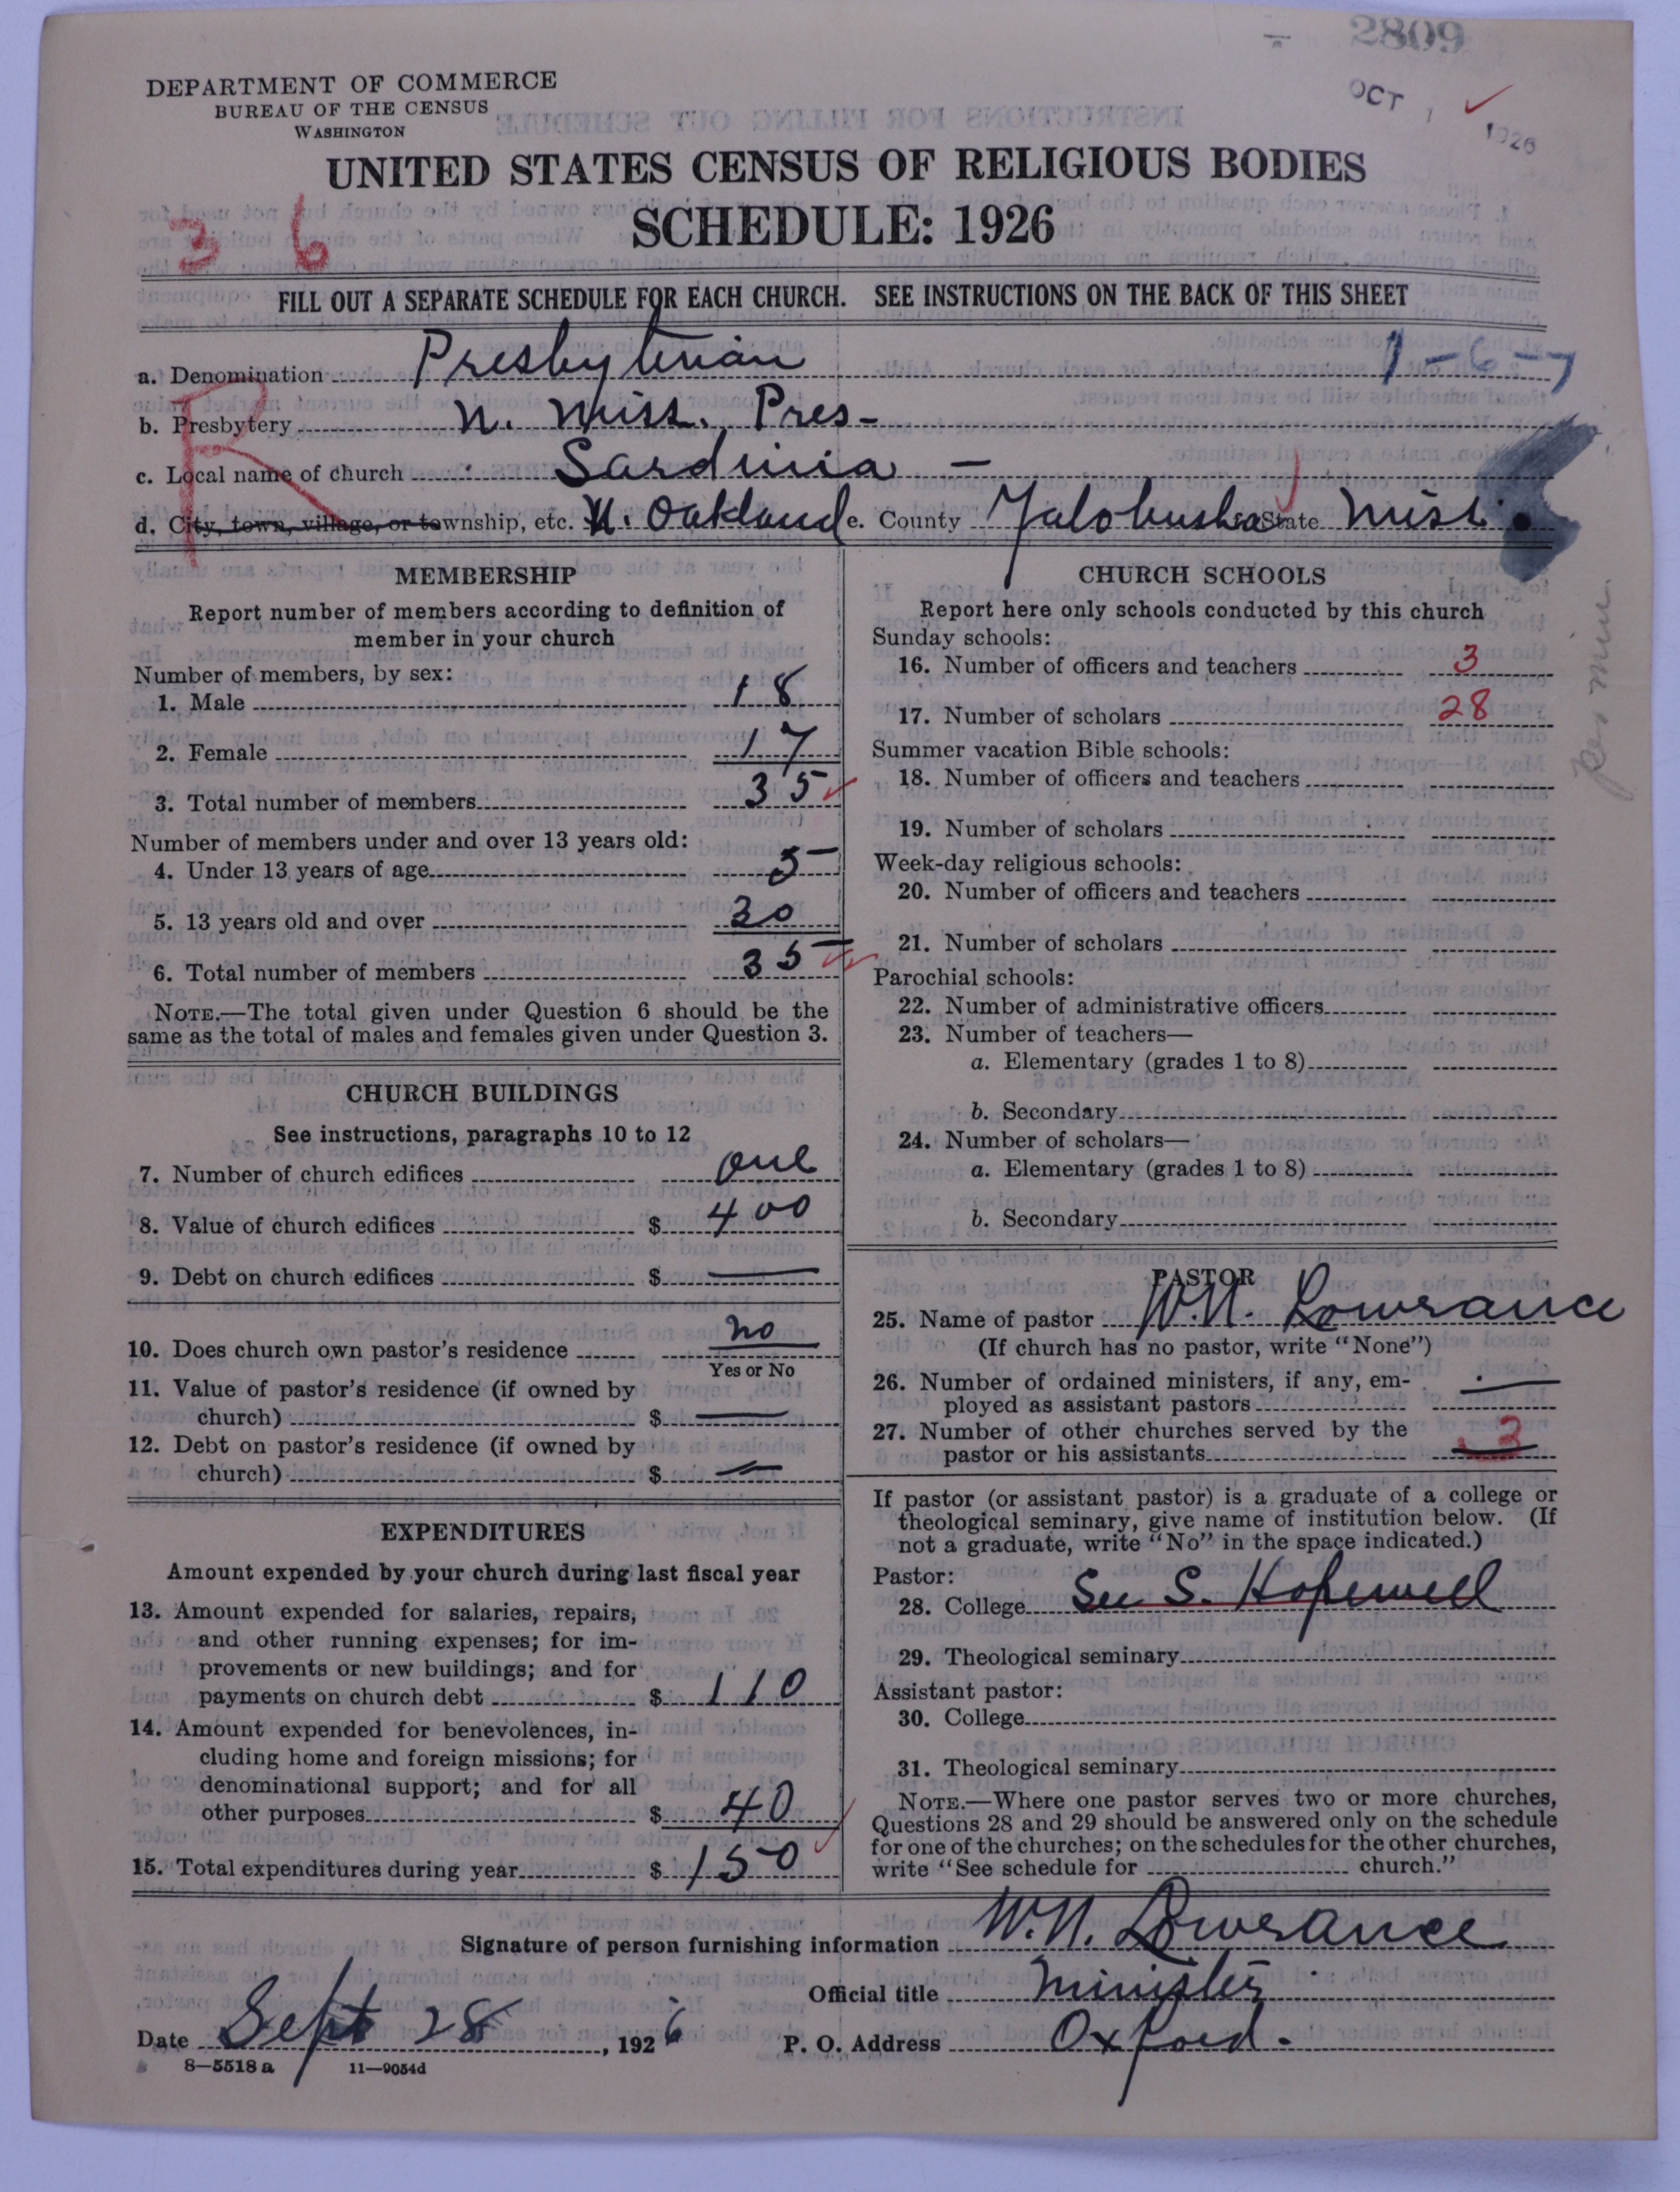 2809
OCT 1 1926
DEPARTMENT OF COMMERCE
BUREAU OF THE CENSUS
WASHINGTON
UNITED STATES CENSUS OF RELIGIOUS BODIES
SCHEDULE: 1926
3 6
FILL OUT A SEPARATE SCHEDULE FOR EACH CHURCH. SEE INSTRUCTIONS ON THE BACK OF THIS SHEET
a. Denomination Presbyterian 1-6-7
b. Presbytery N. Miss. Pres-
c. Local name of church Sardinia -
R
d. City, town, village, or township, etc. N. Oakland e. County Yalobusha State Miss.
MEMBERSHIP
Report number of members according to definition of
member in your church
Number of members, by sex:
1. Male 18
2. Female 17
3. Total number of members 35
Number of members under and over 13 years old:
4. Under 13 years of age 5
5. 13 years old and over 30
6. Total number of members 35
NOTE.—The total given under Question 6 should be the
same as the total of males and females given under Question 3.
CHURCH BUILDINGS
See instructions, paragraphs 10 to 12
7. Number of church edifices one
8. Value of church edifices $ 400
9. Debt on church edifices $ —
10. Does church own pastor's residence no
Yes or No
11. Value of pastor's residence (if owned by
church) $ —
12. Debt on pastor's residence (if owned by
church) $ —
EXPENDITURES
Amount expended by your church during last fiscal year
13. Amount expended for salaries, repairs,
and other running expenses; for im-
provements or new buildings; and for
payments on church debt $ 110
14. Amount expended for benevolences, in-
cluding home and foreign missions; for
denominational support; and for all
other purposes $ 40
15. Total expenditures during year $ 150
CHURCH SCHOOLS
Report here only schools conducted by this church
Sunday schools:
16. Number of officers and teachers 3
17. Number of scholars 28
Summer vacation Bible schools:
18. Number of officers and teachers
19. Number of scholars
Week-day religious schools:
20. Number of officers and teachers
21. Number of scholars
Parochial schools:
22. Number of administrative officers
23. Number of teachers—
a. Elementary (grades 1 to 8)
b. Secondary
24. Number of scholars—
a. Elementary (grades 1 to 8)
b. Secondary
per min
PASTOR
25. Name of pastor W.N. Lowrance
(If church has no pastor, write "None")
26. Number of ordained ministers, if any, em-
ployed as assistant pastors —
27. Number of other churches served by the
pastor or his assistants 3
If pastor (or assistant pastor) is a graduate of a college or
theological seminary, give name of institution below. (If
not a graduate, write "No" in the space indicated.)
Pastor:
28. College See S. Hopewell
29. Theological seminary
Assistant pastor:
30. College
31. Theological seminary
NOTE.—Where one pastor serves two or more churches,
Questions 28 and 29 should be answered only on the schedule
for one of the churches; on the schedules for the other churches,
write "See schedule for church."
Signature of person furnishing information W.N. Lowrance
Official title Minister
Date Sept 28, 1926 P. O. Address Oxford.
8—5518 a 11—9054d